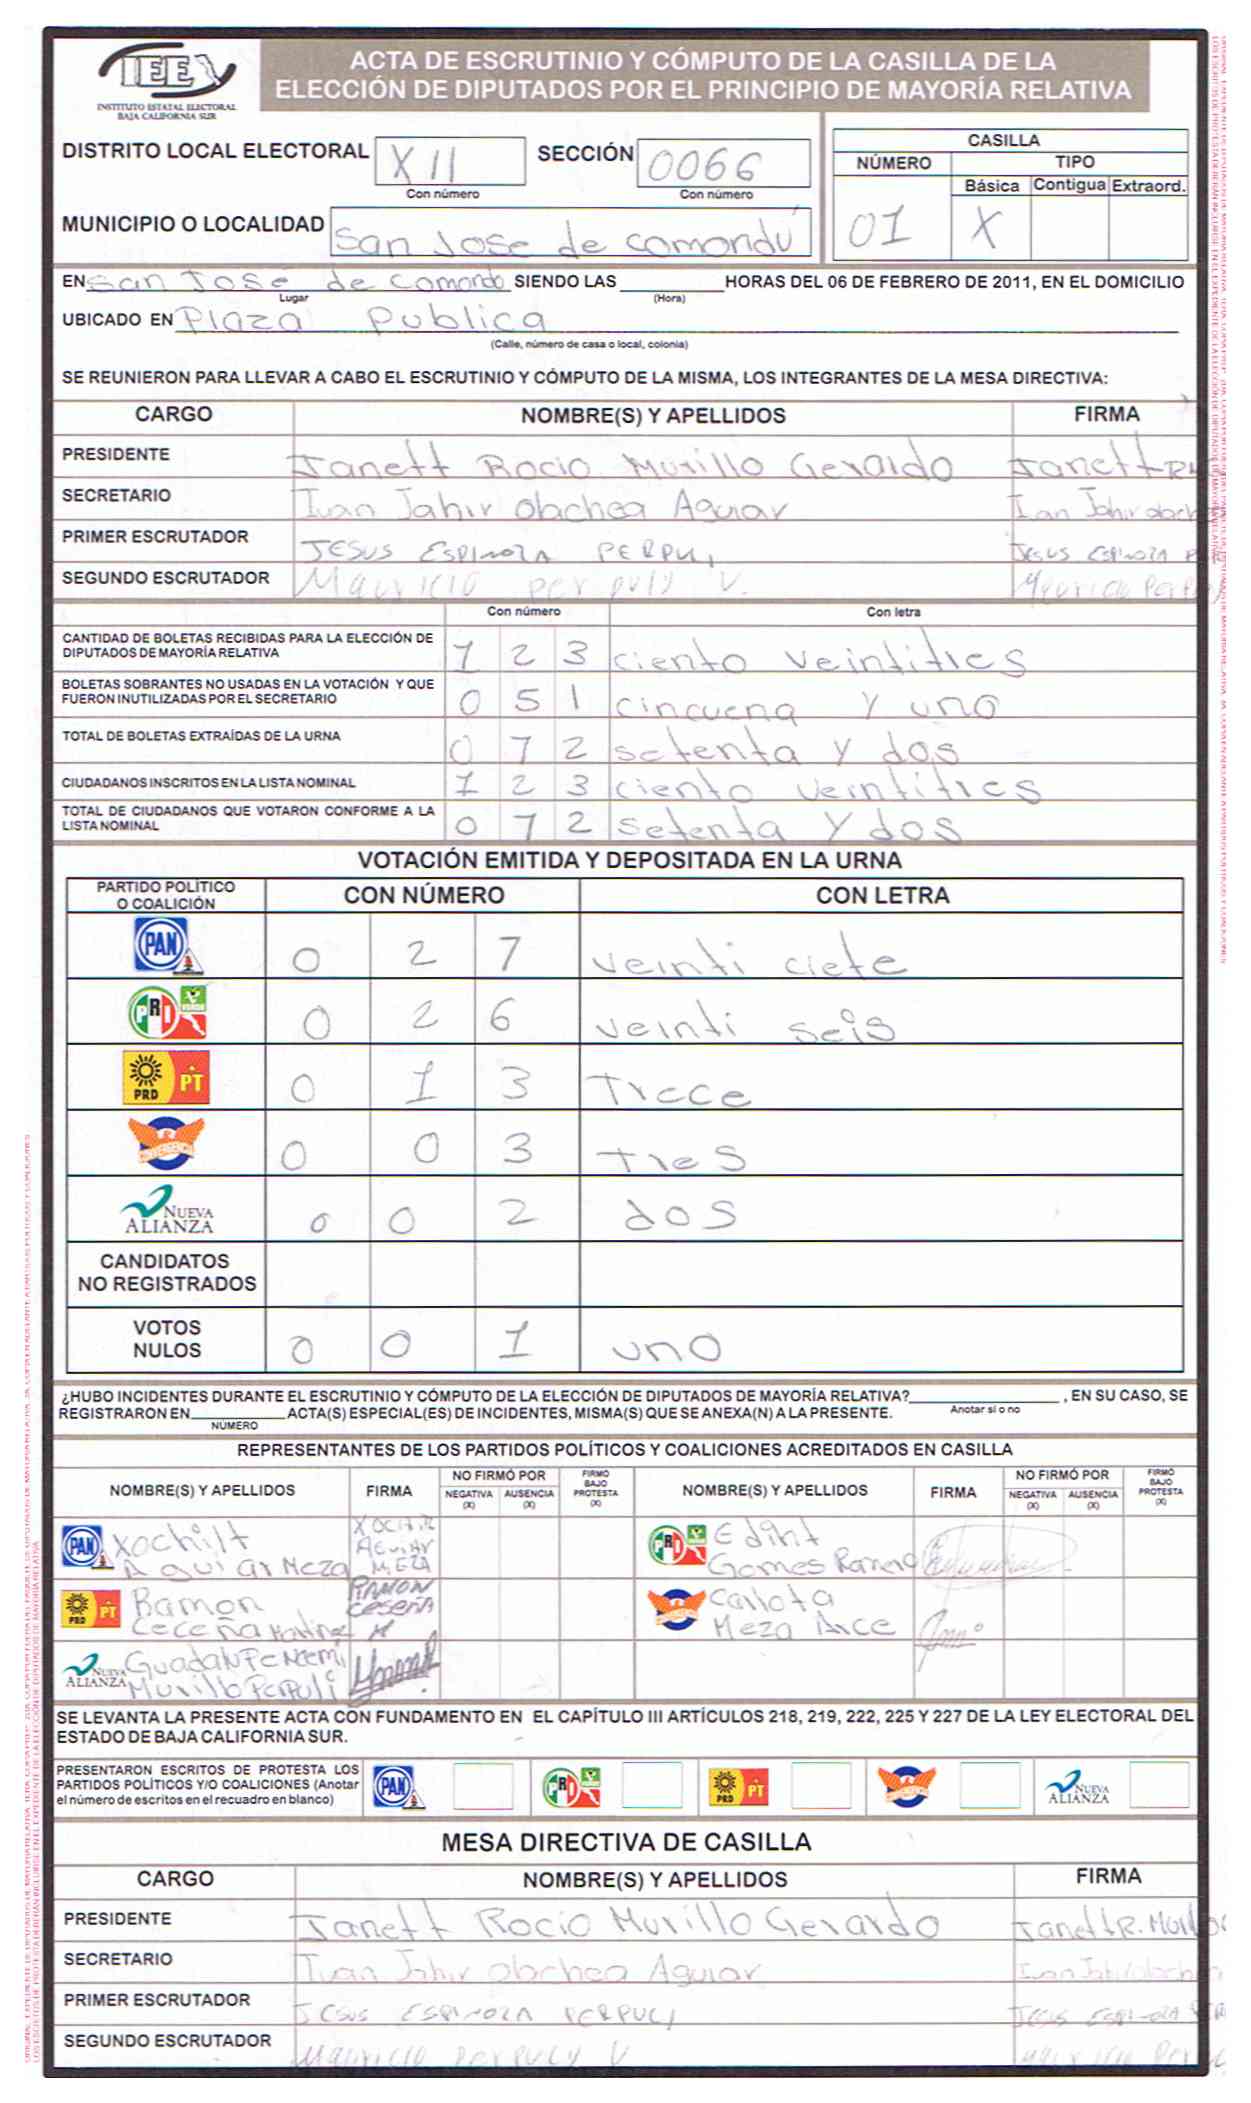 IEE
INSTITUTO ESTATAL ELECTORAL
BAJA CALIFORNIA SUR
ACTA DE ESCRUTINIO Y CÓMPUTO DE LA CASILLA DE LA
ELECCIÓN DE DIPUTADOS POR EL PRINCIPIO DE MAYORÍA RELATIVA
DISTRITO LOCAL ELECTORAL XII SECCIÓN 0066
Con número Con número
MUNICIPIO O LOCALIDAD San Jose de Comondú
CASILLA
NÚMERO TIPO
Básica Contigua Extraord.
01 X
EN San José de Comondo SIENDO LAS HORAS DEL 06 DE FEBRERO DE 2011, EN EL DOMICILIO
Lugar (Hora)
UBICADO EN Plaza Publica
(Calle, número de casa o local, colonia)
SE REUNIERON PARA LLEVAR A CABO EL ESCRUTINIO Y CÓMPUTO DE LA MISMA, LOS INTEGRANTES DE LA MESA DIRECTIVA:
CARGO NOMBRE(S) Y APELLIDOS FIRMA
PRESIDENTE Janett Rocio Murillo Geraldo Janett R
SECRETARIO Ivan Jahir olachea Aguiar Ivan Jahir olach
PRIMER ESCRUTADOR JESUS ESPINOZA PERPULI JESUS ESPINOZA
SEGUNDO ESCRUTADOR Mauricio perpuly V. Mauricio Perp
Con número Con letra
CANTIDAD DE BOLETAS RECIBIDAS PARA LA ELECCIÓN DE
DIPUTADOS DE MAYORÍA RELATIVA 1 2 3 ciento veintitres
BOLETAS SOBRANTES NO USADAS EN LA VOTACIÓN Y QUE
FUERON INUTILIZADAS POR EL SECRETARIO 0 5 1 cincuena y uno
TOTAL DE BOLETAS EXTRAÍDAS DE LA URNA 0 7 2 setenta y dos
CIUDADANOS INSCRITOS EN LA LISTA NOMINAL 1 2 3 ciento veintitres
TOTAL DE CIUDADANOS QUE VOTARON CONFORME A LA
LISTA NOMINAL 0 7 2 setenta y dos
VOTACIÓN EMITIDA Y DEPOSITADA EN LA URNA
PARTIDO POLÍTICO
O COALICIÓN CON NÚMERO CON LETRA
PAN 0 2 7 veinti ciete
PRI VERDE 0 2 6 veinti seis
PRD PT 0 1 3 Trece
CONVERGENCIA 0 0 3 Tres
NUEVA ALIANZA 0 0 2 dos
CANDIDATOS
NO REGISTRADOS
VOTOS
NULOS 0 0 1 uno
¿HUBO INCIDENTES DURANTE EL ESCRUTINIO Y CÓMPUTO DE LA ELECCIÓN DE DIPUTADOS DE MAYORÍA RELATIVA? , EN SU CASO, SE
Anotar sí o no
REGISTRARON EN ACTA(S) ESPECIAL(ES) DE INCIDENTES, MISMA(S) QUE SE ANEXA(N) A LA PRESENTE.
NÚMERO
REPRESENTANTES DE LOS PARTIDOS POLÍTICOS Y COALICIONES ACREDITADOS EN CASILLA
NOMBRE(S) Y APELLIDOS FIRMA NO FIRMÓ POR NEGATIVA (X) AUSENCIA (X) FIRMÓ BAJO PROTESTA (X) NOMBRE(S) Y APELLIDOS FIRMA NO FIRMÓ POR NEGATIVA (X) AUSENCIA (X) FIRMÓ BAJO PROTESTA (X)
PAN Xochilt Aguiar Meza AGUIAR MEZA PRI VERDE Edint Gomes
PRD PT Ramon Ceceña RAMON CESEÑA M CONVERGENCIA Carlota Meza Arce
NUEVA ALIANZA Murillo Perpuli
SE LEVANTA LA PRESENTE ACTA CON FUNDAMENTO EN EL CAPÍTULO III ARTÍCULOS 218, 219, 222, 225 Y 227 DE LA LEY ELECTORAL DEL
ESTADO DE BAJA CALIFORNIA SUR.
PRESENTARON ESCRITOS DE PROTESTA LOS
PARTIDOS POLÍTICOS Y/O COALICIONES (Anotar
el número de escritos en el recuadro en blanco)
PAN PRI VERDE PRD PT CONVERGENCIA NUEVA ALIANZA
MESA DIRECTIVA DE CASILLA
CARGO NOMBRE(S) Y APELLIDOS FIRMA
PRESIDENTE Janett Rocio Murillo Gerardo Janett R. Murillo
SECRETARIO Ivan Jahir olachea Aguiar Ivan Jahir olachea
PRIMER ESCRUTADOR JESUS ESPINOZA PERPULI JESUS ESPINOZA
SEGUNDO ESCRUTADOR Mauricio perpuly V Mauricio Perp